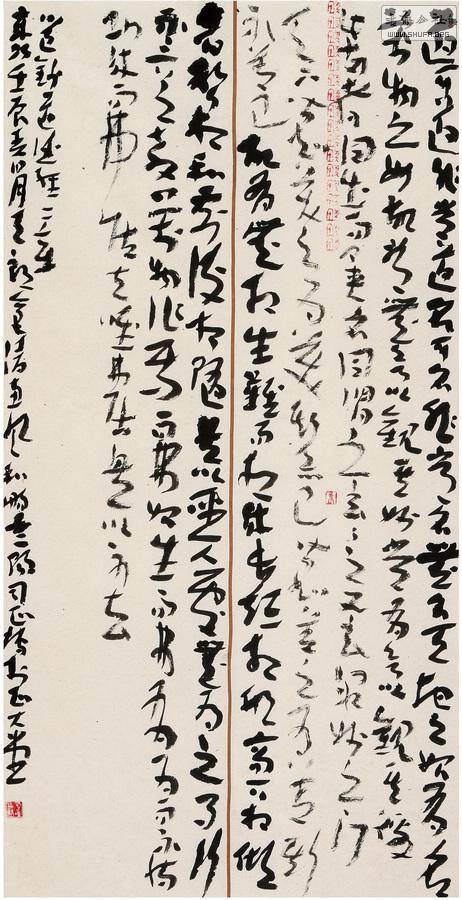 道可道非常道名可名非常名無名天地之始有名
萬物之母故常無欲以觀其妙常有欲以觀其徼
此兩者同出而異名同謂之玄玄之又玄眾妙之門
天下皆知美之為美斯惡已皆知善之為善斯
不善已故有無相生難易相成長短相形高下相傾
音聲相和前後相隨是以聖人處無為之事行
不言之教萬物作焉而弗始生而弗有為而不恃
功成而弗居夫唯弗居是以不去
道德經一二章
壬辰春月
WWW.SHUFA.ORG